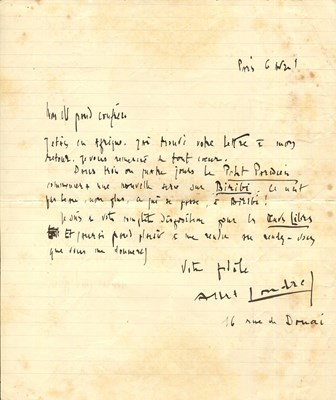 Paris 6
Mon cher grand confrère
J'étais en Afrique. J'ai trouvé votre lettre à mon
retour. Je vous remercie de tout cœur.
Dans trois ou quatre jours le Petit Parisien
commencera une nouvelle série sur Biribi. Ce n'est
pas beau, non plus, ce qui se passe, à Biribi !
Je suis à votre complète disposition pour les
Et j'aurai grand plaisir à me rendre au rendez-vous
que vous me donnerez
Votre
Albert Londres
16 rue de Douai